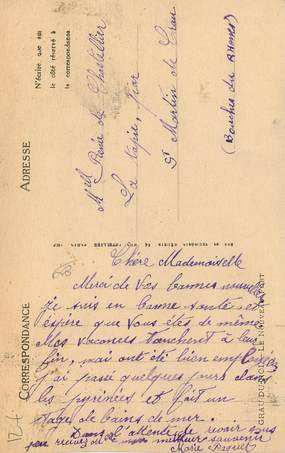 CORRESPONDANCE
Chère Mademoiselle
Merci de vos bonnes nouvelles
Je suis en bonne santé et
espère que vous êtes de même
Mes vacances touchent à leur
fin, mai ont été bien employées
j'ai passé quelques jours dans
les pyrénées et fait un
stage de bains de mer.
Dans l'attente de revoir vous
meilleur souvenir
Marie
ADRESSE
N'écrire que sur
le côté réservé à
la correspondance
Mlle Renée de Chatellier
La tapie, par
St Martin de Crau
(Bouches du RHONE)
GRAU-DU-ROI - LE NOUVEAU PORT